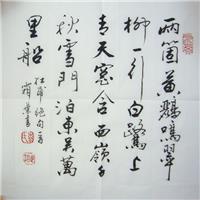 兩箇黃鸝鳴翠
柳一行白鷺上
青天窓含西嶺千
秋雪門泊東吳萬
里船
杜甫絕句
書